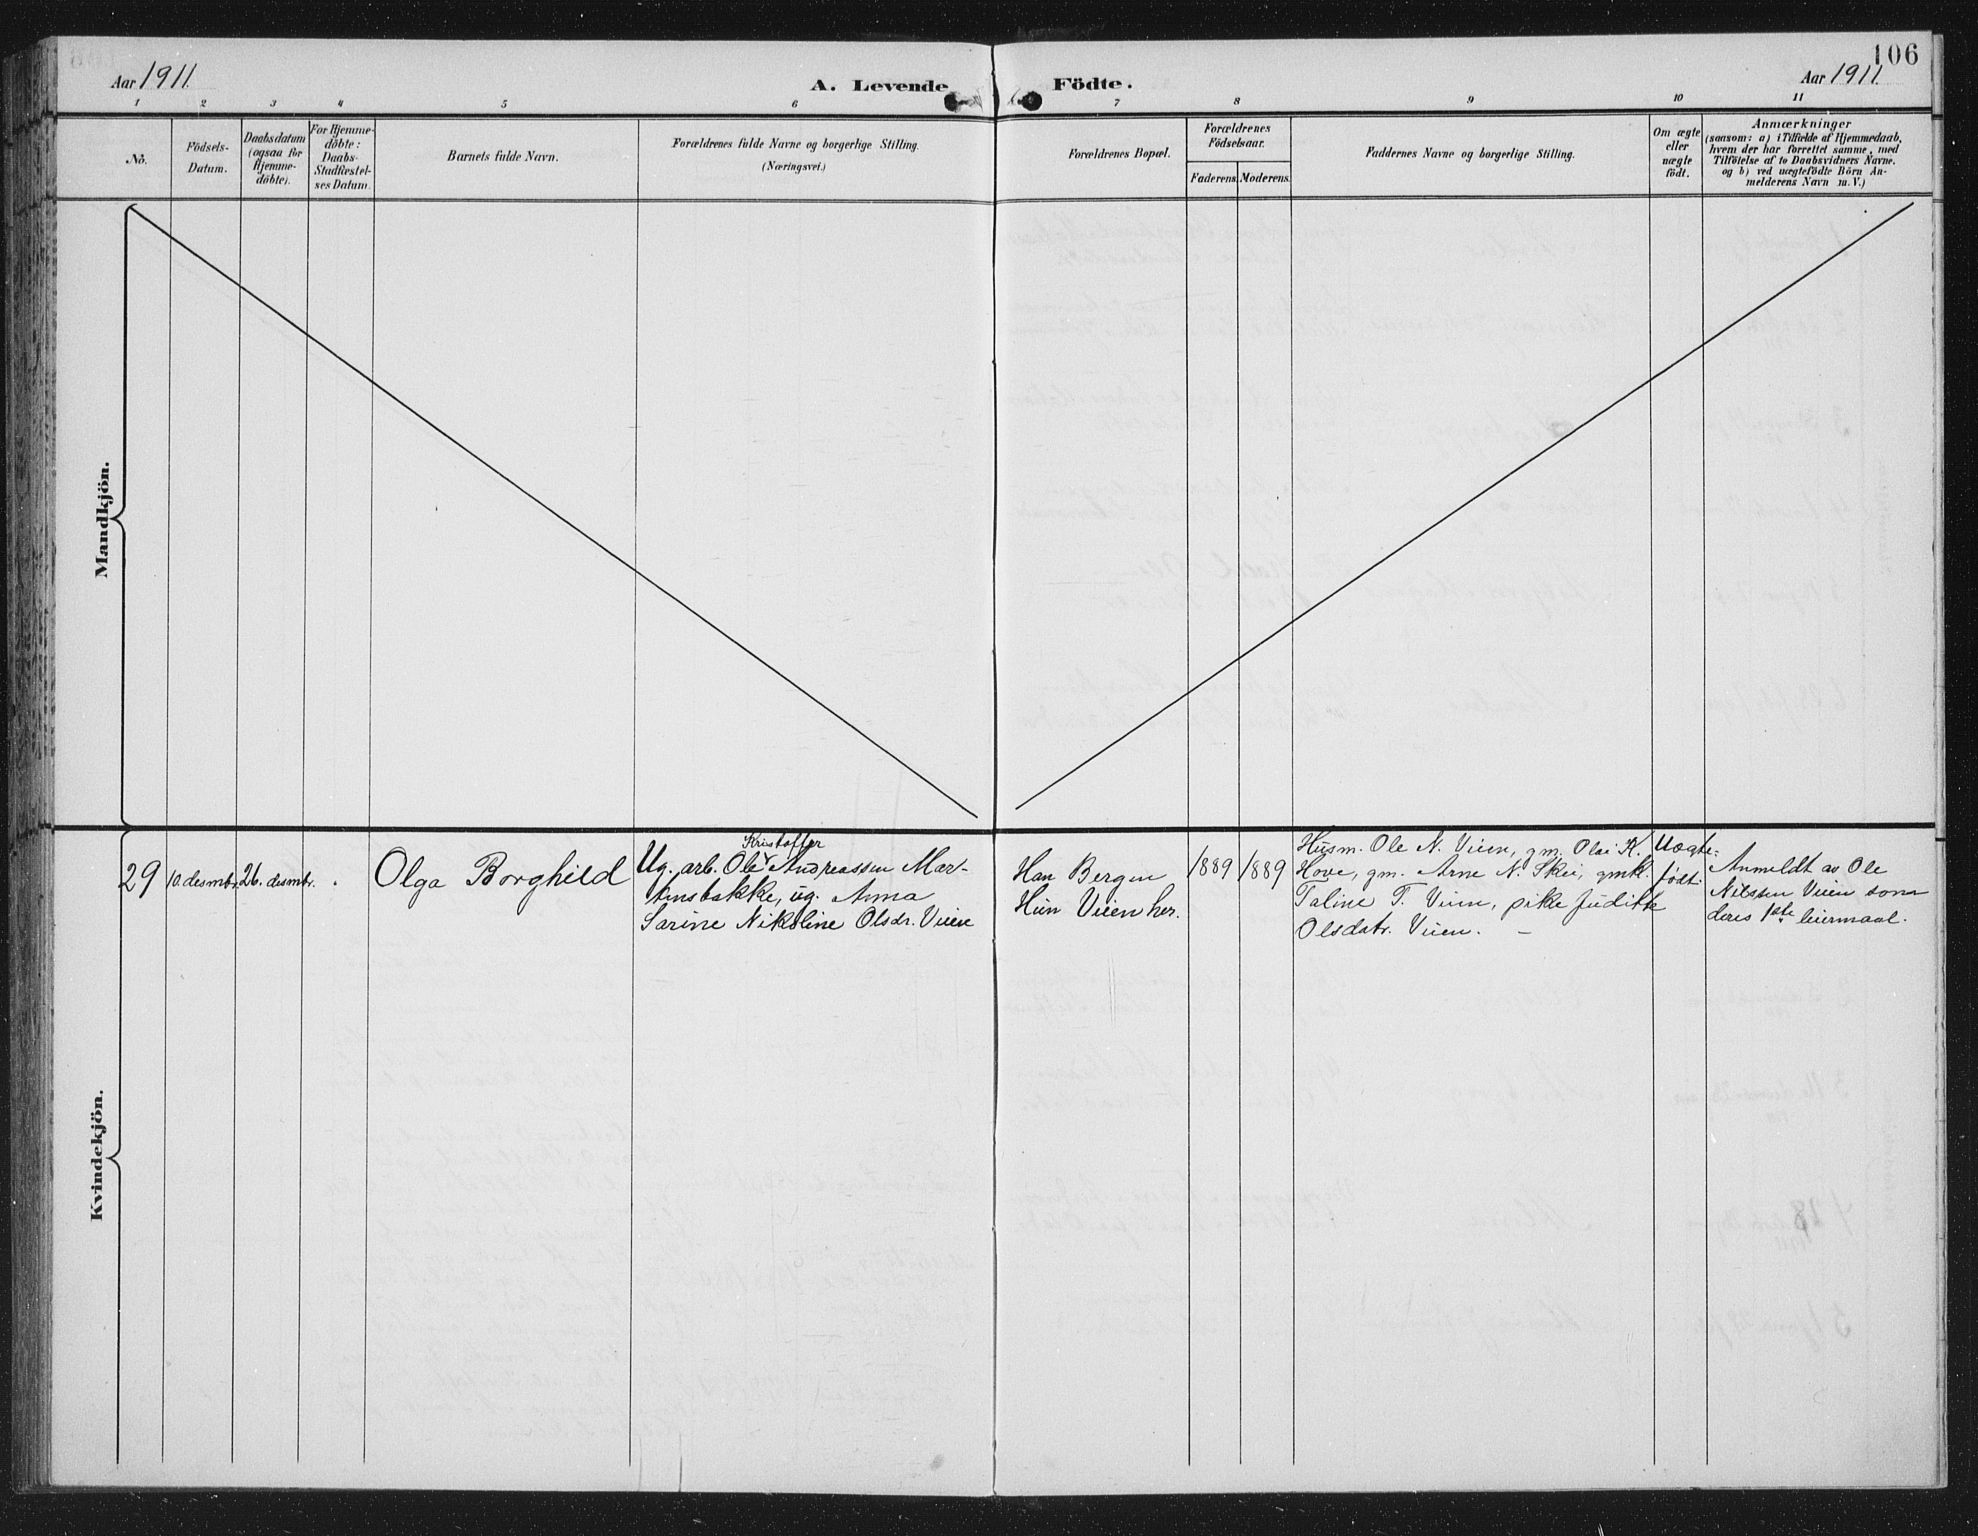 106
Aar 1911.
A. Levende
Födte.
Aar 1911.
1 2 3 4 5 6 7 8 9 10 11
No.
Födsels-
Datum.
Daabsdatum
(ogsaa for
Hjemme-
döbte).
For Hjemme-
döbte:
Daabs-
Stadfæstel-
ses Datum.
Barnets fulde Navn.
Forældrenes fulde Navne og borgerlige Stilling.
(Næringsvei.)
Forældrenes Bopæl.
Forældrenes
Födselsaar.
Faderens.
Moderens.
Faddernes Navne og borgerlige Stilling.
Om ægte
eller
uægte
födt.
Anmærkninger
(saasom: a) i Tilfælde af Hjemmedaab,
hvem der har forrettet samme, med
Tilföielse af to Daabsvidners Navne.
og b) ved uægtefödte Börn An-
melderens Navn m. V.)
Mandkjön.
Kvindekjön.
29
10. desmbr.
26. desmbr.
Olga Borghild
Kristoffer
Ug. arb. Ole Andreassen Mar-
tinsbakke, ug. Anna
Sarine Nikoline Olsdr. Vien
Han Bergen
Hun Vien her.
1889
1889
Husm. Ole N. Vien, gm. Olai K.
Hove, gm. Arne N. Skei, gmk.
Taline T. Vien, pike Judith
Olsdatr. Vien. –
Uægte-
födt.
Anmeldt av Ole
Nilssen Vien som
deres 1ste leiermaal.